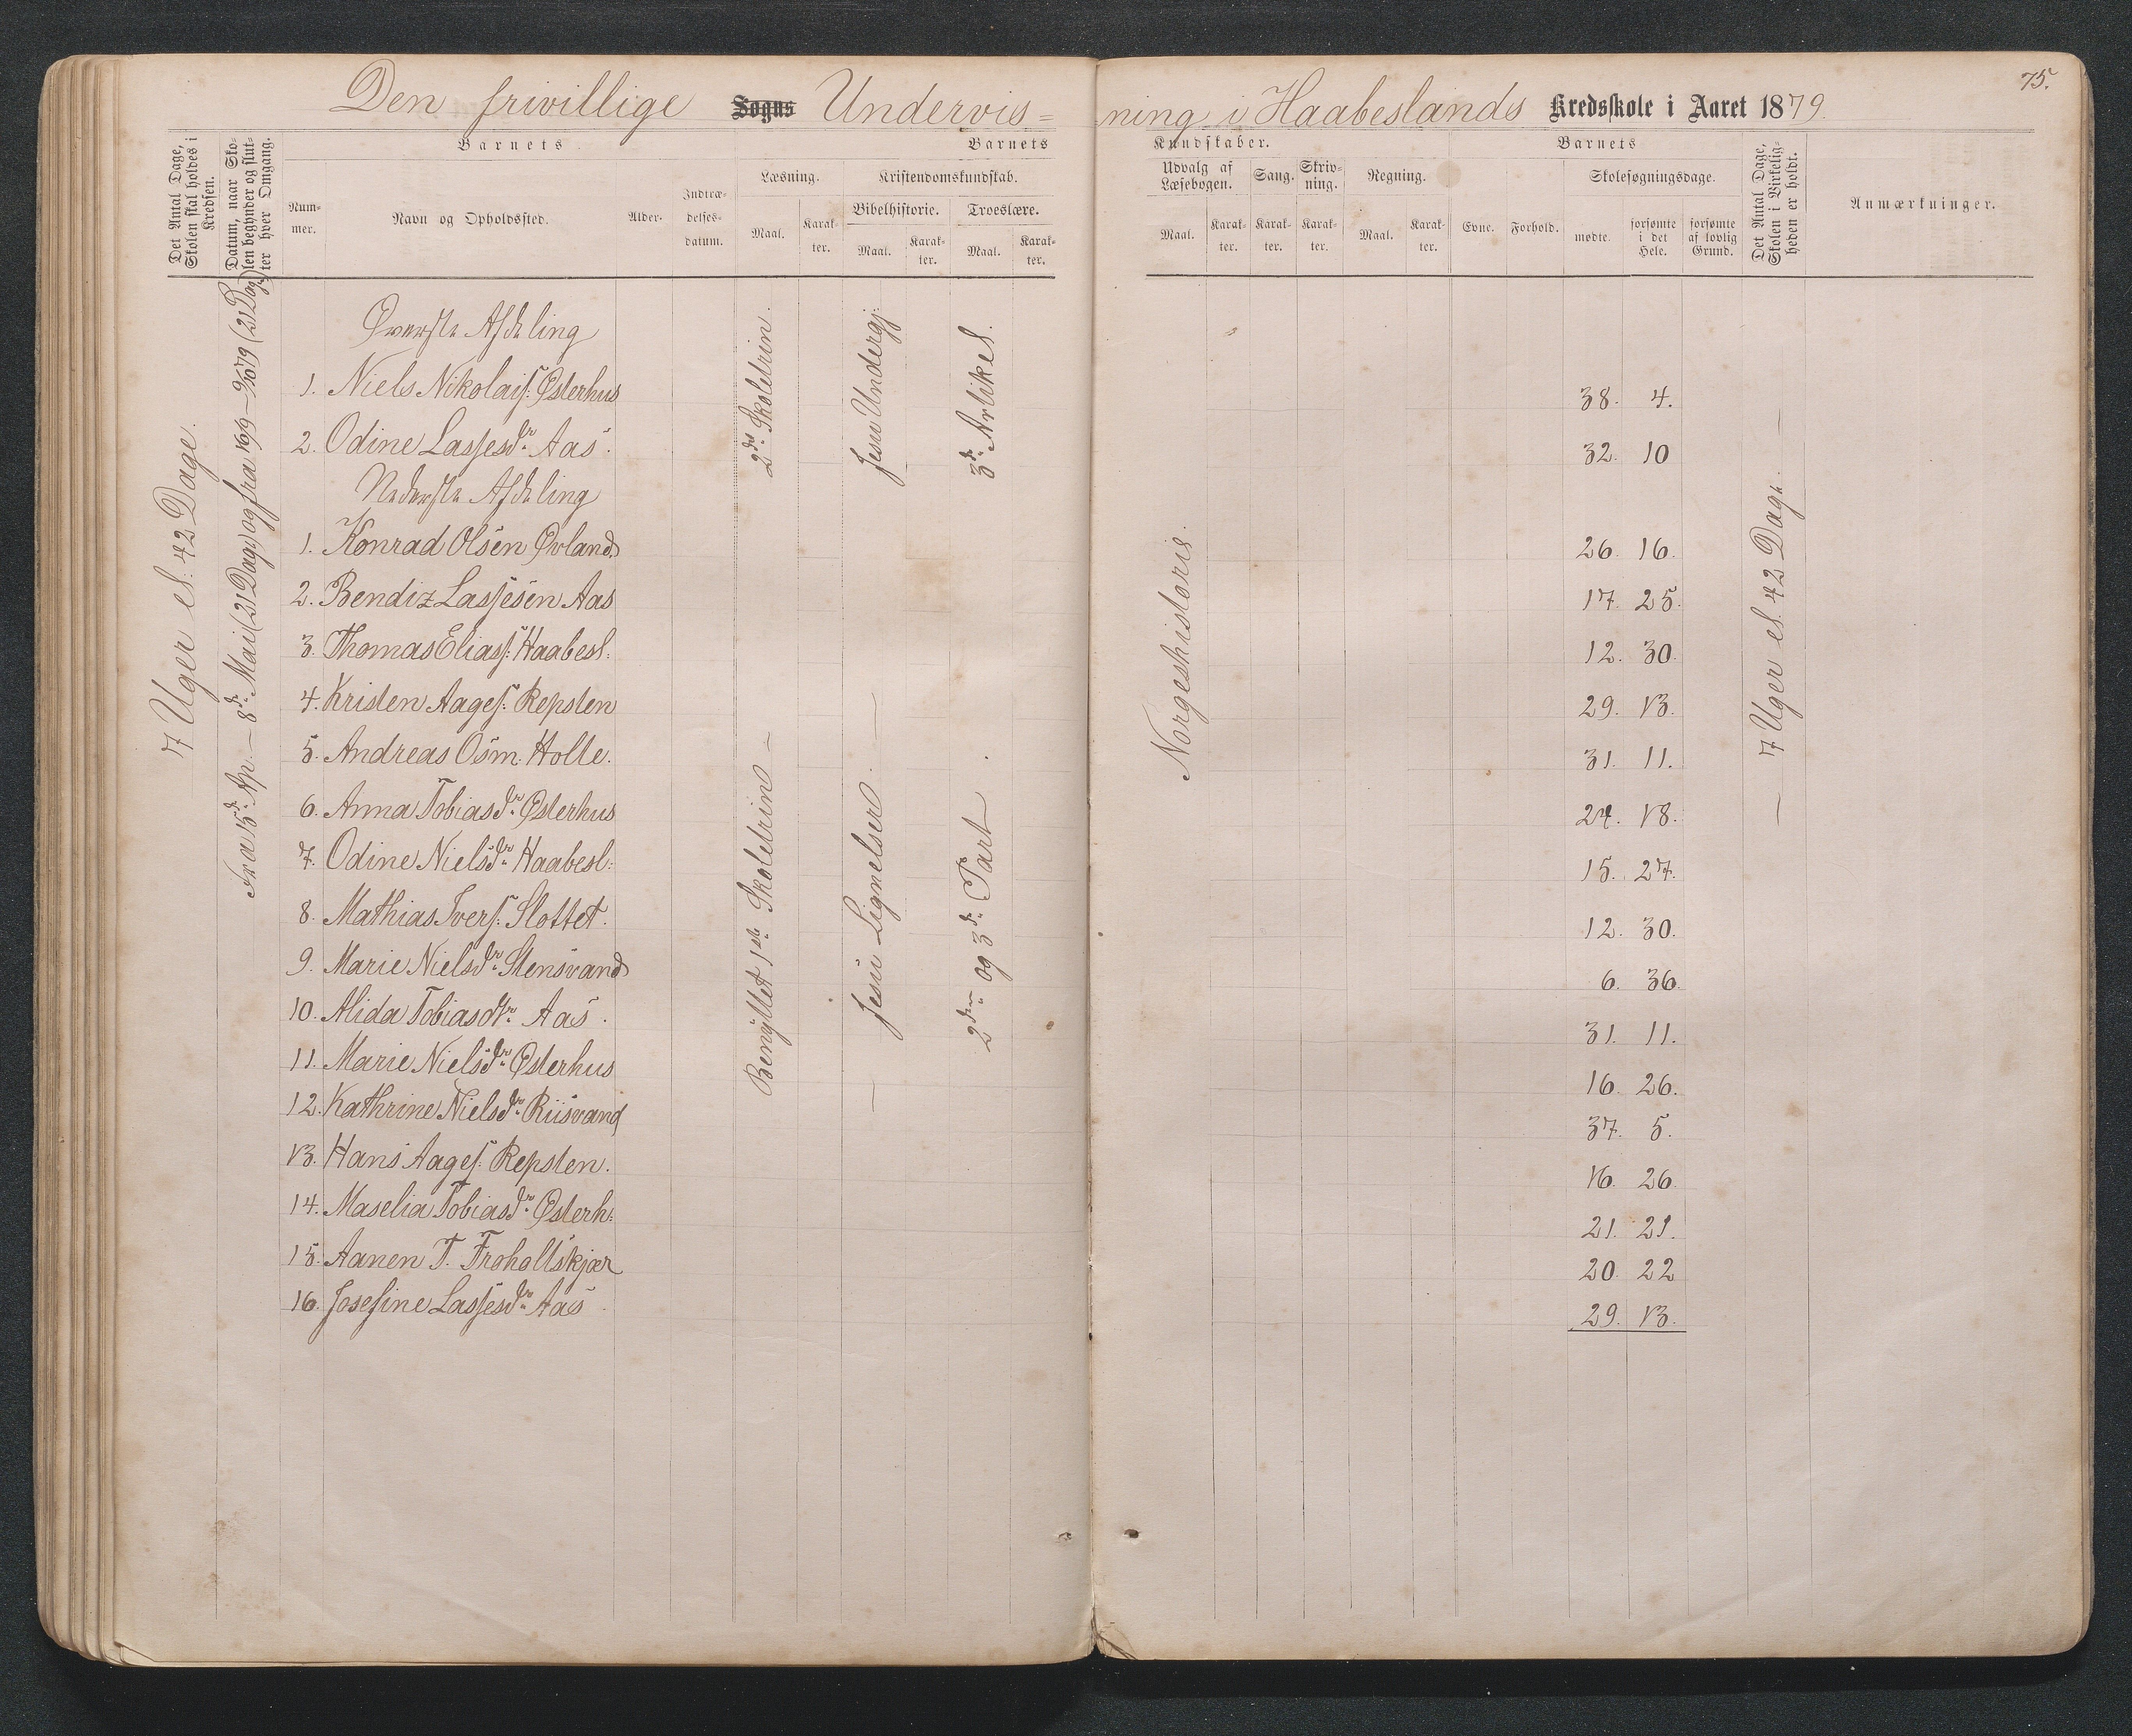 75.
Den frivillige Sogns Undervis=
ning i Haabeslands Kredsskole i Aaret 1879.
Det Antal Dage, Skolen skal holdes i Kredsen.
Datum, naar Skolen begynder og slutter hver Omgang.
Barnets
Nummer.
Navn og Opholdssted.
Alder.
Indtrædelsesdatum.
Barnets
Læsning.
Maal.
Karakter.
Kristendomskundskab.
Bibelhistorie.
Maal.
Karakter.
Troeslære.
Maal.
Karakter.
Kundskaber.
Udvalg af Læsebogen.
Maal.
Karakter.
Sang.
Karakter.
Skrivning.
Karakter.
Regning.
Maal.
Karakter.
Barnets
Evne.
Forhold.
Skolesøgningsdage.
mødte.
forsømte i det Hele.
forsømte af lovlig Grund.
Det Antal Dage, Skolen i Virkeligheden er holdt.
Anmærkninger.
7 Uger el. 42 Dage.
Fra 15de Ap. – 8de Mai (21 Dage) og fra 16/9 – 9/10 79 (21 Dage)
Øverste Afdeling
1. Niels Nikolais: Østerhus 38. 4.
2. Odine Lassesdr. Aas. 32. 10
2det Skoletrin.
Jesu Undergj.
3de Artikel.
Nederste Afdeling
1. Konrad Olsen Øvland 26. 16.
2. Bendiz Lassesen Aas 17. 25.
3. Thomas Eliass: Haabesl: 12. 30.
4. Kristen Aages: Repsten 29. 13.
5. Andreas Osm. Holte. 31. 11.
6. Anna Tobiasdr. Østerhus 24. 18.
7. Odine Nielsdr. Haabesl: 15. 27.
8. Mathias Ivers: Slottet. 12. 30.
9. Marie Nielsdr. Stensvand 6. 36.
10. Alida Tobiasdtr. Aas. 31. 11.
11. Marie Nielsdr. Østerhus 16. 26.
12. Kathrine Nielsdr. Riisvand 37. 5.
13. Hans Aages: Repsten. 16. 26
14. Maselia Tobiasdr. Østerh: 21. 21.
15. Aanen T. Froholtskjær 20. 22
16. Josefine Lassesdr. Aas. 29. 13.
Benyttet 1ste Skoletrin –
– Jesu Lignelser. –
2den og 3de Part.
Norgeshistorie.
– 7 Uger el. 42 Dage. –